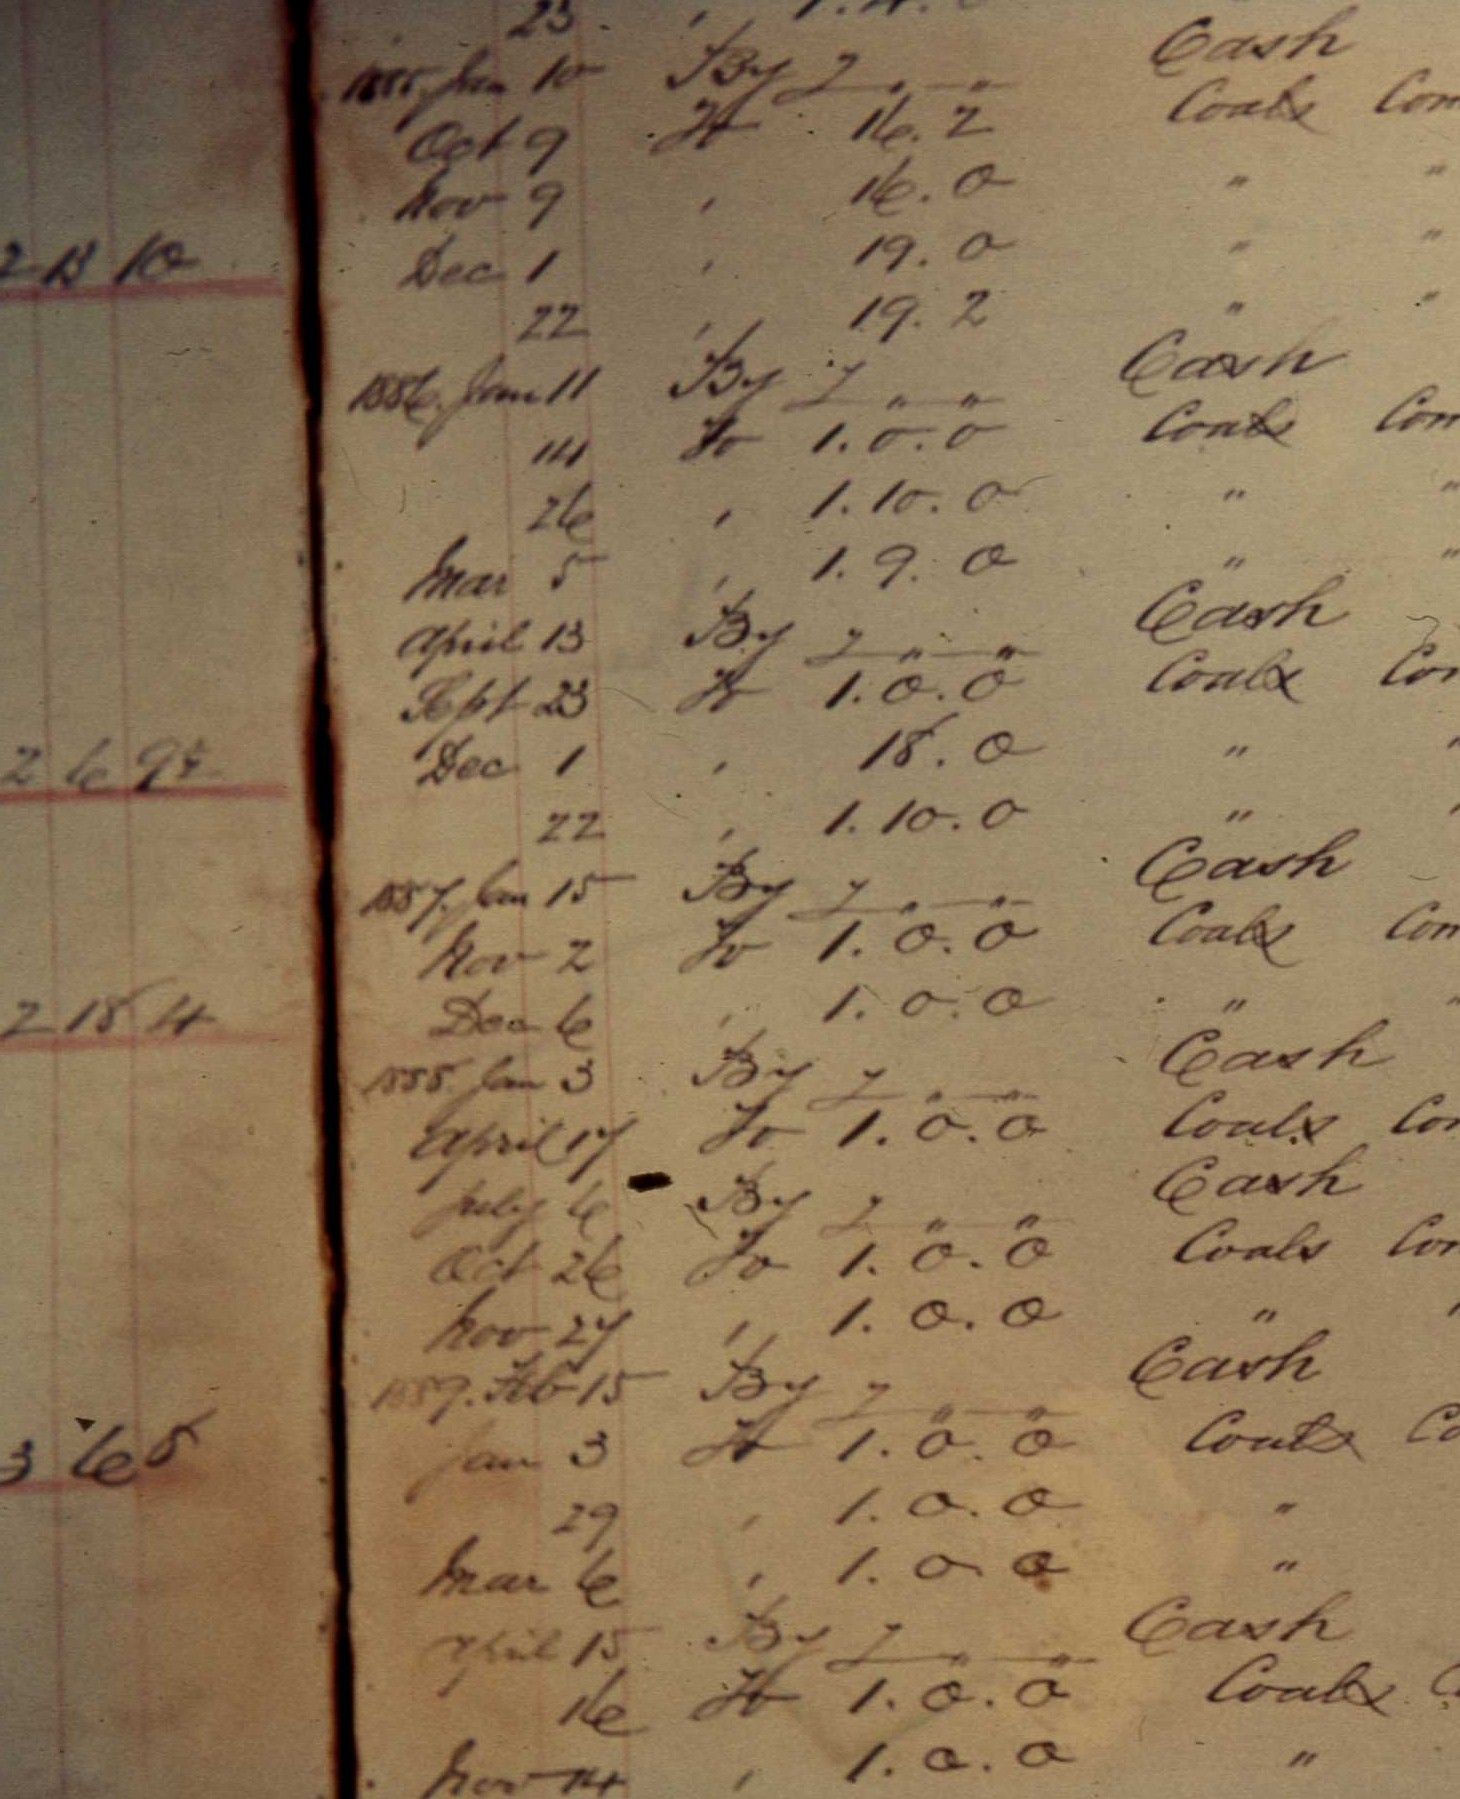 2 13 10
2 6 9½
2 18 4
3 6 8
23 , 1.4.0
1885. Jan 10 By 7 " " Cash
Oct 9 To 16.2 Coals Com
Nov 9 , 16.0 " "
Dec 1 , 19.0 " "
22 , 19.2 " "
1886. Jan 11 By 7 " " Cash
14 To 1.0.0 Coals Com
26 , 1.10.0 " "
Mar 5 , 1.9.0 " "
April 13 By 7 " " Cash
Sept 23 To 1.0.0 Coals Com
Dec 1 , 18.0 " "
22 , 1.10.0 " "
1887. Jan 15 By 7 " " Cash
Nov 2 To 1.0.0 Coals Com
Dec 6 , 1.0.0 " "
1888. Jan 3 By 7 " " Cash
April 17 To 1.0.0 Coals Com
July 6 By 7 " " Cash
Oct 26 To 1.0.0 Coals Com
Nov 27 , 1.0.0 " "
1889. Feb 15 By 7 " " Cash
Jan 3 To 1.0.0 Coals Co
29 , 1.0.0 "
Mar 6 , 1.0.0 "
April 15 By 7 " " Cash
16 To 1.0.0 Coals C
Nov 14 , 1.0.0 "